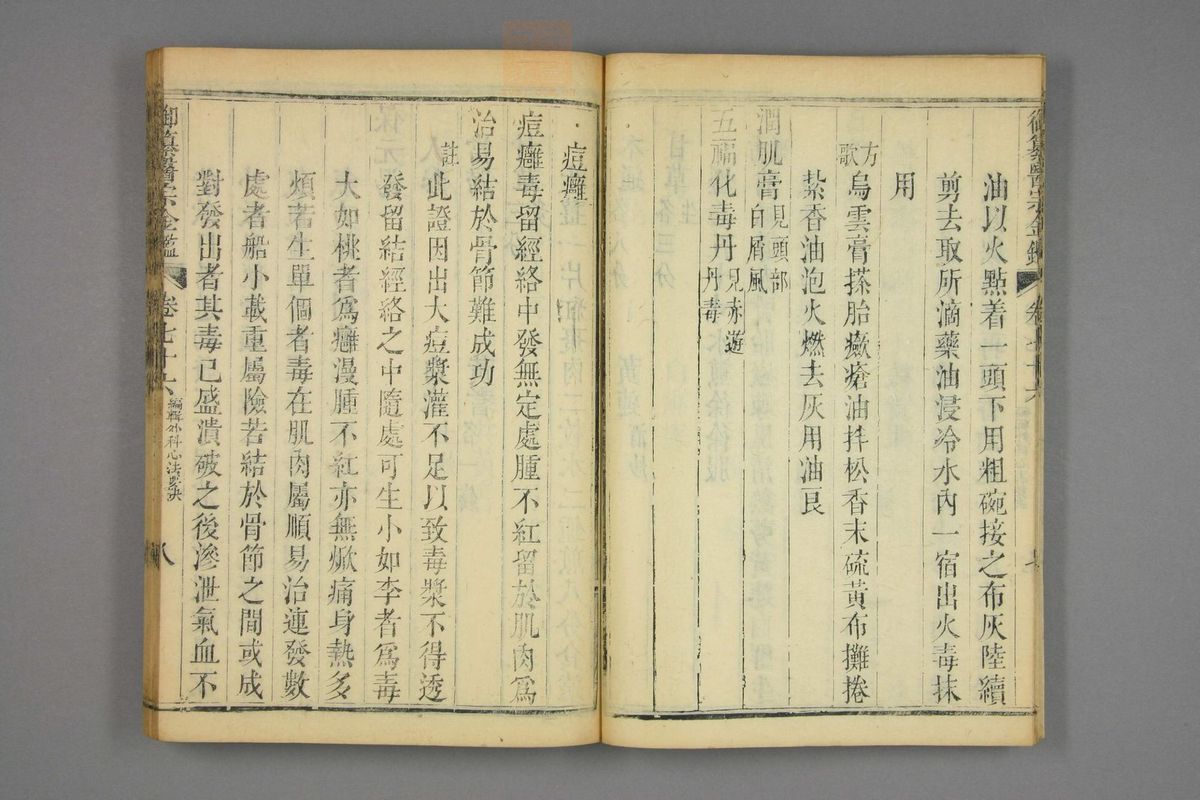 油以火點着一頭下用粗碗接之布灰陸續
剪去取所滴藥油浸冷水內一宿出火毒抹
用
方歌
烏雲膏搽胎㿀瘡油拌松香末硫黃布攤捲
紮香油泡火燃去灰用油良
潤肌膏見頭部白屑風
五福化毒丹見赤遊丹毒
痘癰
痘癰毒留經絡中發無定處腫不紅留於肌肉爲
治易結於骨節難成功
註
此證因出大痘漿灌不足以致毒漿不得透
發留結經絡之中隨處可生小如李者爲毒
大如桃者爲癰漫腫不紅亦無焮痛身熱多
煩若生單個者毒在肌肉屬順易治連發數
處者船小載重屬險若結於骨節之間或成
對發出者其毒已盛潰破之後滲泄氣血不
御纂醫宗金鑑
卷七十六
編輯外科心法要訣
八